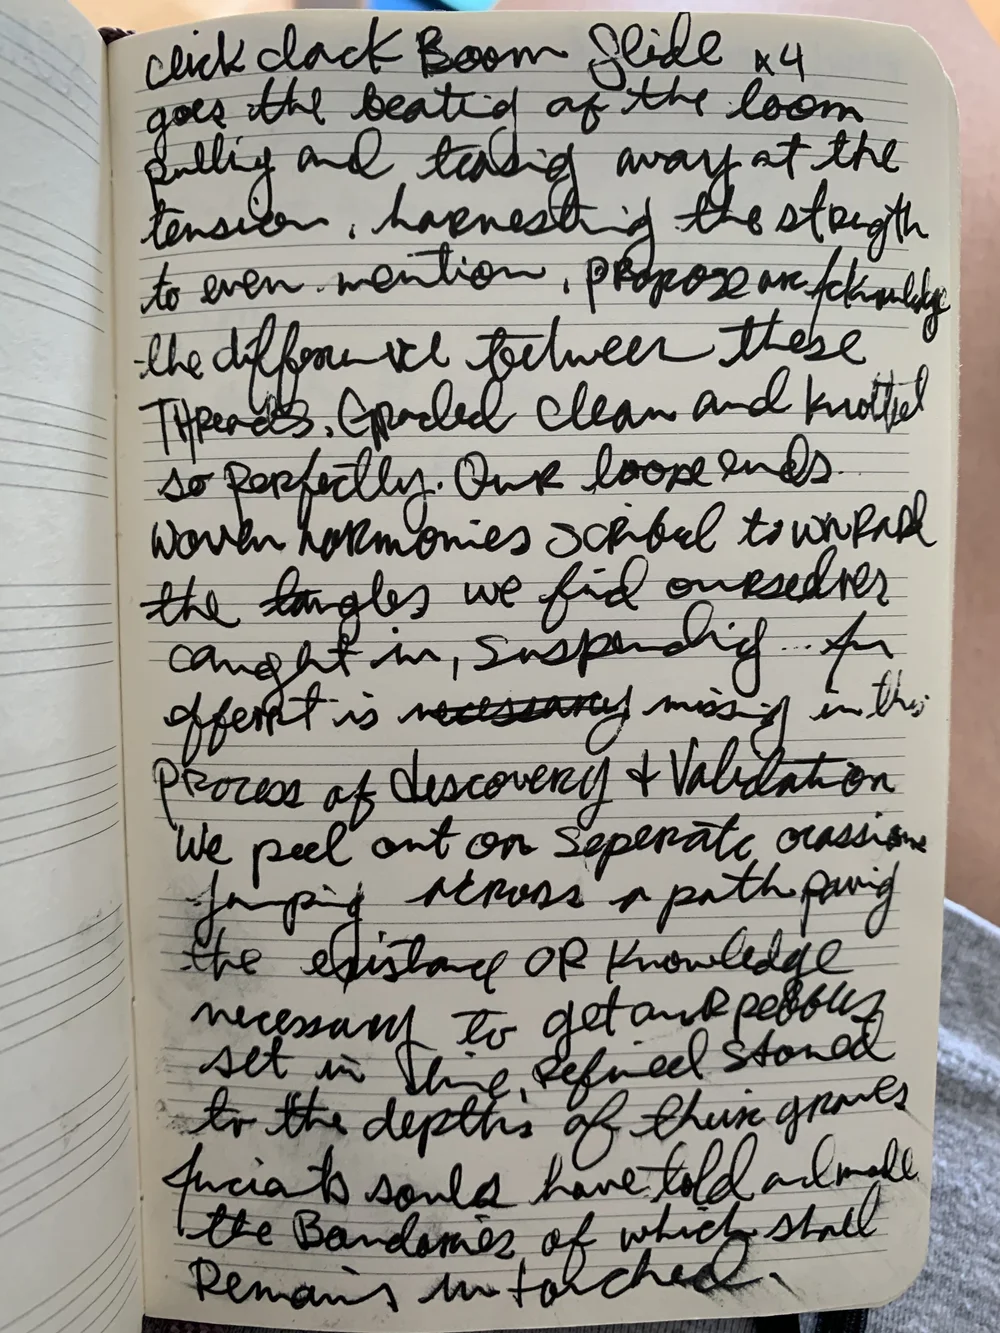 click clack Boom Slide x4
goes the beating of the loom
pulling and teasing away at the
tension, harnessing the strength
to even mention, propose or Acknowledge
the difference between these
THReads. Graded clean and knotted
so perfectly. Our loose ends.
woven harmonies scribed to unravel
the tangles we find ourselves
caught in, suspending... An
offerit is necessary missing in this
process of discovery + Validation
We peel out on seperate ocassions
Jumping across a path paving
the existance OR Knowledge
necessary to get our pebbles
set in line, Refined stoned
to the depths of their graves
Ancients souls have told and made
the Boundaries of which shall
Remain untouched.